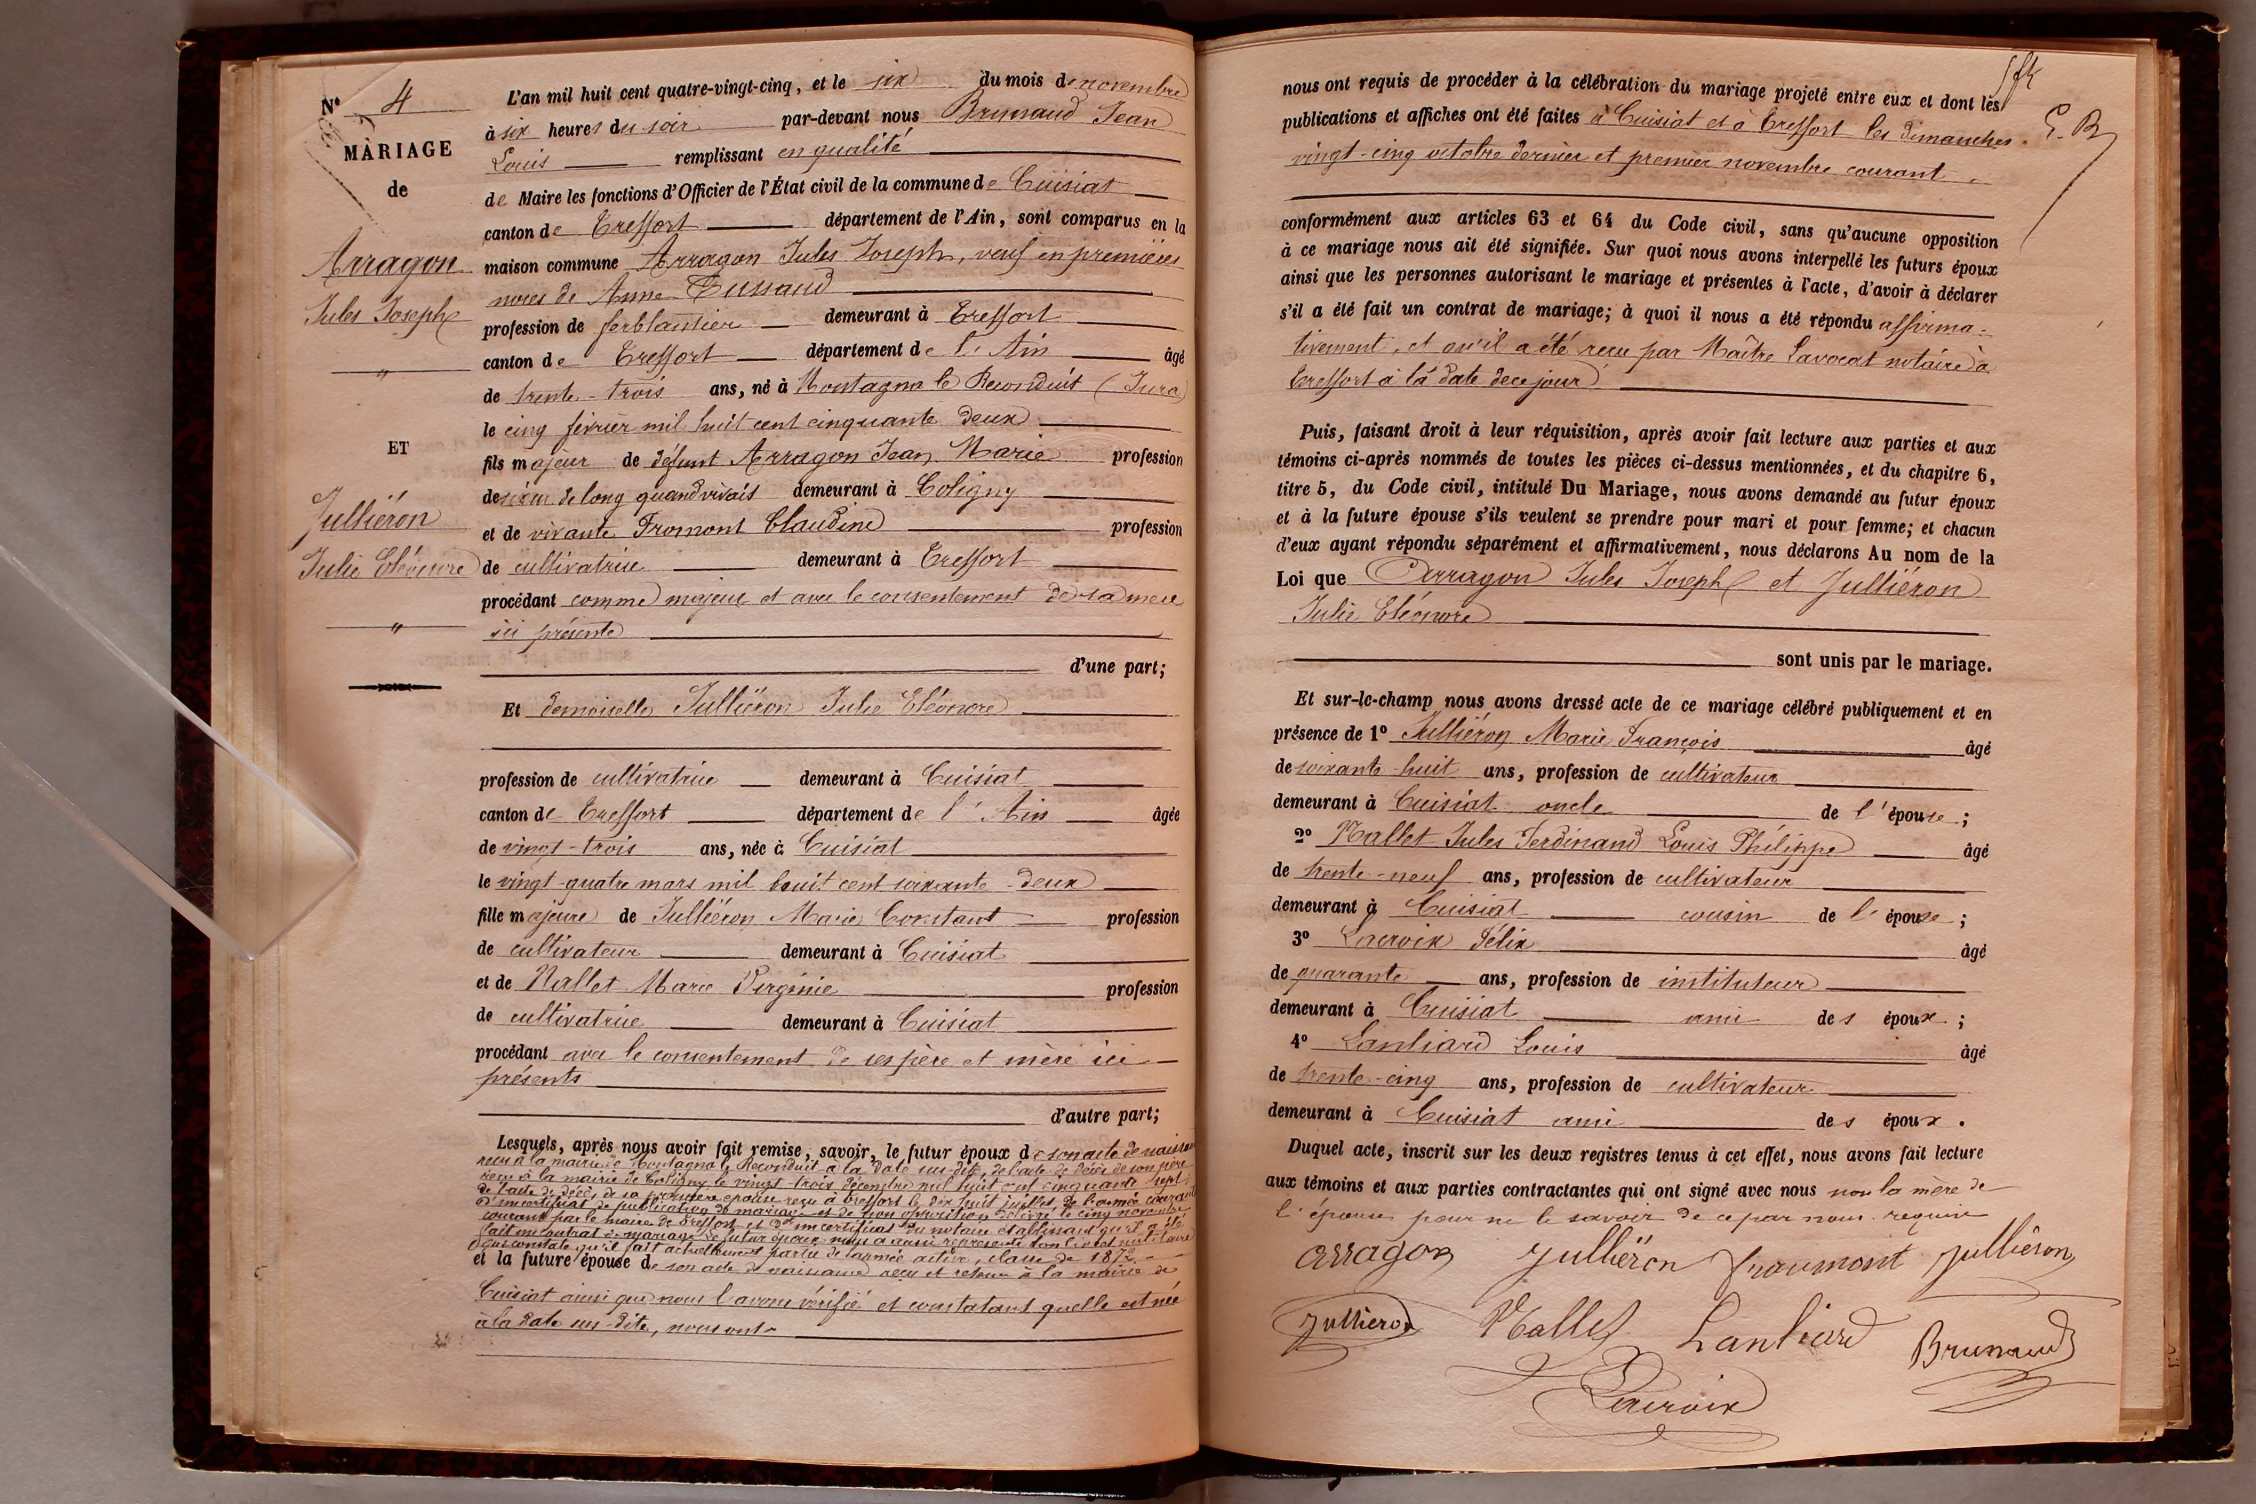 Nº 4
MARIAGE
de
Arragon
Jules Joseph
"
ET
Julliéron
Julie Eléonore
"
L'an mil huit cent quatre-vingt-cinq, et le six du mois de novembre
à six heures du soir par-devant nous Brunaud Jean
Louis remplissant en qualité
de Maire les fonctions d'Officier de l'État civil de la commune de Cuisiat
canton de Treffort département de l'Ain, sont comparus en la
maison commune Arragon Jules Joseph, veuf en premières
noces de Anne
profession de ferblantier demeurant à Treffort
canton de Treffort département de l'Ain âgé
de trente-trois ans, né à Montagna le Reconduit (Jura)
le cinq février mil huit cent cinquante deux
fils majeur de défunt Arragon Jean Marie profession
de scieur de long quand vivait demeurant à Coligny
et de vivante Fromont Claudine profession
de cultivatrice demeurant à Treffort
procédant comme majeur et avec le consentement de sa mère
ici présente
d'une part;
Et demoiselle Julliéron Julie Eléonore
profession de cultivatrice demeurant à Cuisiat
canton de Treffort département de l'Ain âgée
de vingt-trois ans, née à Cuisiat
le vingt-quatre mars mil huit cent soixante-deux
fille majeure de Julliéron Marie Constant profession
de cultivateur demeurant à Cuisiat
et de Nallet Marie Virginie profession
de cultivatrice demeurant à Cuisiat
procédant avec le consentement de ses père et mère ici
présents
d'autre part;
Lesquels, après nous avoir fait remise, savoir, le futur époux de son acte de naissance
reçu à la mairie de Montagna le Reconduit à la date sus-dite, de l'acte de décès de son père
reçu à la mairie de Coligny le vingt-trois décembre mil huit cent cinquante sept
de l'acte de décès de sa première épouse reçu à Treffort le dix huit juillet de l'année courante
d'un certificat de publication de mariage et de non opposition délivré le cinq novembre
courant par le maire de Treffort et d'un certificat du notaire établissant qu'il a été
fait un contrat de mariage. Le futur époux nous a aussi représenté son livret militaire
constate qu'il fait actuellement partie de l'armée active, classe de 1872
et la future épouse de son acte de naissance reçu et retenu à la mairie de
Cuisiat ainsi que nous l'avons vérifié et constatant quelle est née
à la date sus-dite, nous ont
nous ont requis de procéder à la célébration du mariage projeté entre eux et dont les
publications et affiches ont été faites à Cuisiat et à Treffort les dimanches
vingt-cinq octobre dernier et premier novembre courant
conformément aux articles 63 et 64 du Code civil, sans qu'aucune opposition
à ce mariage nous ait été signifiée. Sur quoi nous avons interpellé les futurs époux
ainsi que les personnes autorisant le mariage et présentes à l'acte, d'avoir à déclarer
s'il a été fait un contrat de mariage; à quoi il nous a été répondu affirma-
tivement, et qu'il a été reçu par Maître Lavocat notaire à
Treffort à la date de ce jour
Puis, faisant droit à leur réquisition, après avoir fait lecture aux parties et aux
témoins ci-après nommés de toutes les pièces ci-dessus mentionnées, et du chapitre 6,
titre 5, du Code civil, intitulé Du Mariage, nous avons demandé au futur époux
et à la future épouse s'ils veulent se prendre pour mari et pour femme; et chacun
d'eux ayant répondu séparément et affirmativement, nous déclarons Au nom de la
Loi que Arragon Jules Joseph et Julliéron
Julie Eléonore
sont unis par le mariage.
Et sur-le-champ nous avons dressé acte de ce mariage célébré publiquement et en
présence de 1º Julliéron Marie François âgé
de soixante-huit ans, profession de cultivateur
demeurant à Cuisiat oncle de l'épouse;
2º Nallet Jules Ferdinand Louis Philippe âgé
de trente-neuf ans, profession de cultivateur
demeurant à Cuisiat cousin de l'épouse;
3º Lacroix Félix âgé
de quarante ans, profession de instituteur
demeurant à Cuisiat ami des époux;
4º Lanliard Louis âgé
de trente-cinq ans, profession de cultivateur
demeurant à Cuisiat ami des époux.
Duquel acte, inscrit sur les deux registres tenus à cet effet, nous avons fait lecture
aux témoins et aux parties contractantes qui ont signé avec nous non la mère de
l'épouse pour ne le savoir de ce par nous requise
arragon Julliéron fraumont julliéron
Julliéron Nallet Lanliard Brunaud
Lacroix